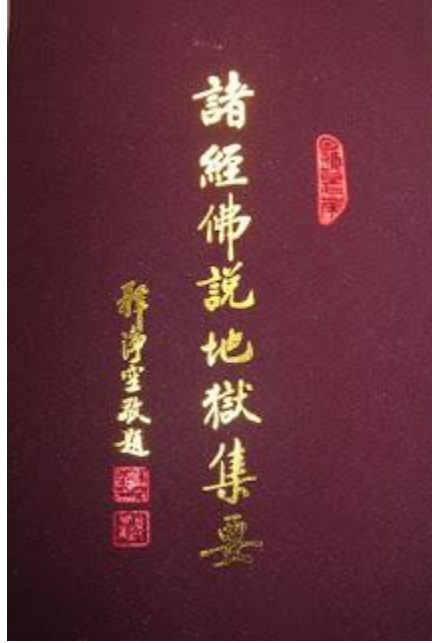 諸經佛説地獄集要
釋淨空敬題